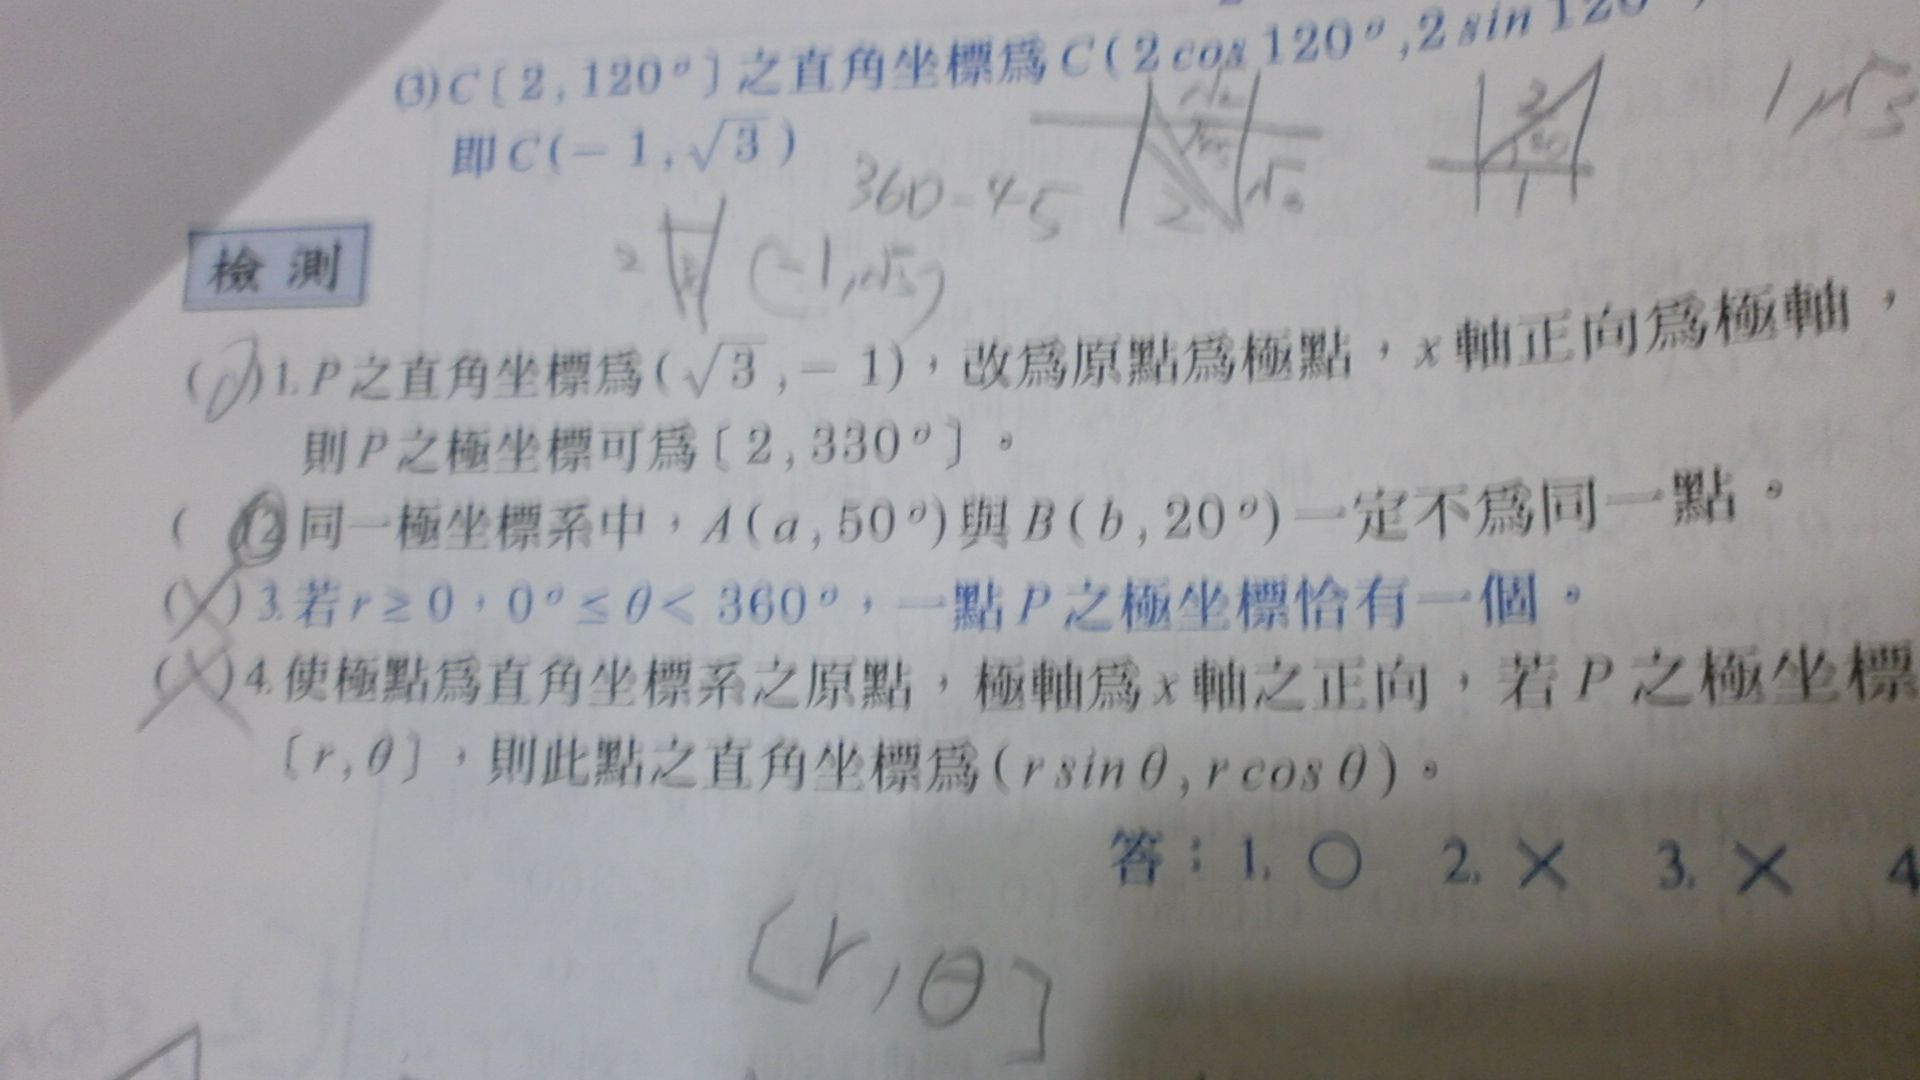 (3) C〔2,120°〕之直角坐標爲C(2cos120°,2sin120°
即C(-1,√3)
360-45
(-1,√3)
檢測
1. P之直角坐標爲(√3,-1),改爲原點爲極點,x軸正向爲極軸,
則P之極坐標可爲〔2,330°〕。
( )2. 同一極坐標系中,A(a,50°)與B(b,20°)一定不爲同一點。
(X)3. 若r≥0,0°≤θ<360°,一點P之極坐標恰有一個。
(X)4. 使極點爲直角坐標系之原點,極軸爲x軸之正向,若P之極坐標
〔r,θ〕,則此點之直角坐標爲(r sinθ,r cosθ)。
答:1. ○ 2. × 3. × 4
[r,θ]